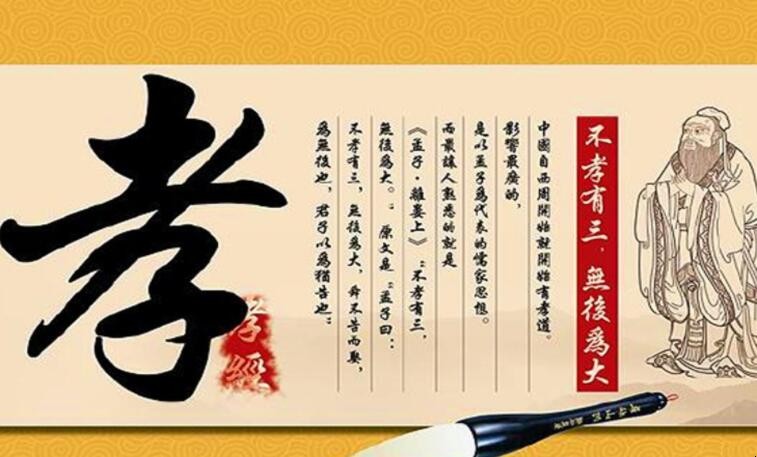 不孝有三，無後爲大
中國自西周開始就開始有孝道。
影響最廣的，
是以孟子爲代表的儒家思想。
而最讓人熟悉的就是
《孟子·離婁上》“不孝有三，
無後爲大。”原文是“孟子曰：
不孝有三，無後爲大，舜不告而娶，
爲無後也，君子以爲猶告也”
孝
孝經